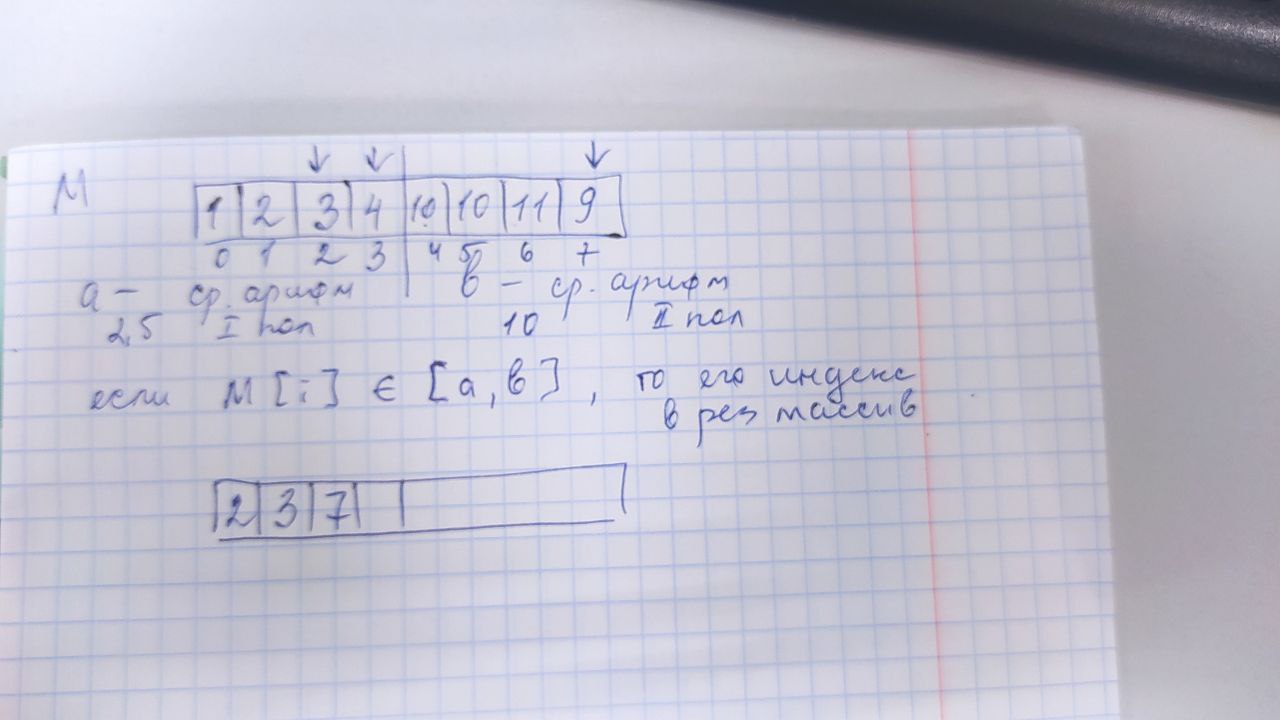 М
↓ ↓ ↓
1 2 3 4 10 10 11 9
0 1 2 3 4 5 6 7
а – ср. арифм в – ср. арифм
2,5 I пол 10 II пол
если М[i] ∈ [а, в], то его индекс
в рез массив
2 3 7